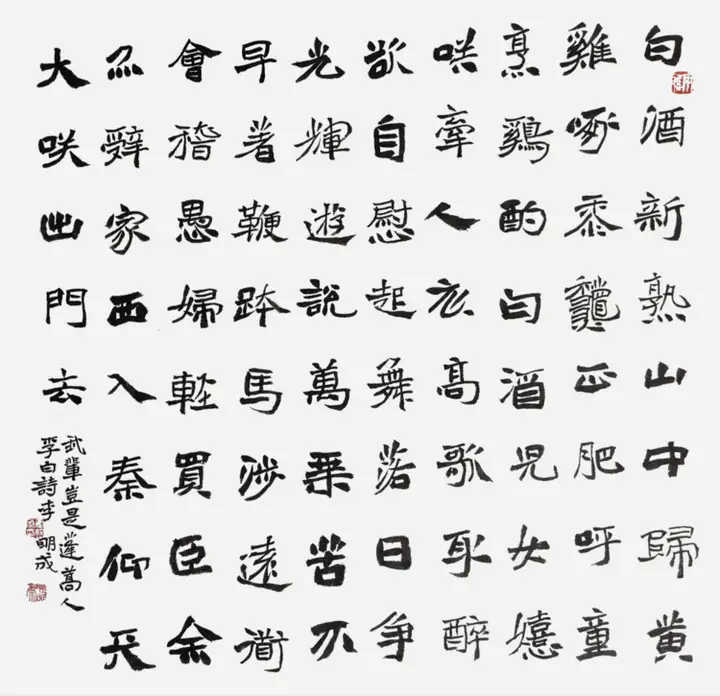 白酒新熟山中歸黄
雞啄黍龝正肥呼童
烹鷄酌白酒兒女嬉
咲牽人衣高歌取醉
欲自慰起舞落日争
光輝遊說萬乘苦不
早著鞭跨馬涉遠衜
會稽愚婦輕買臣余
亦辭家西入秦仰天
大咲出門去
我輩豈是蓬蒿人
李白詩李明成